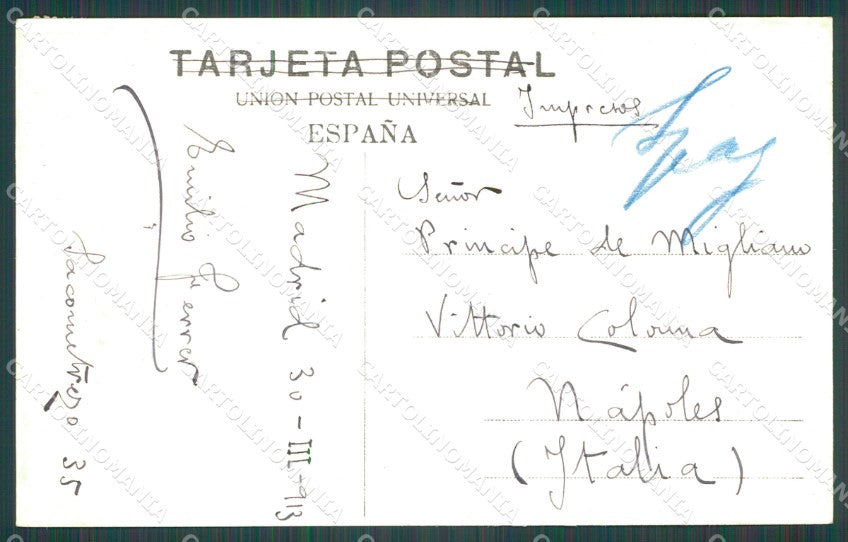 TARJETA POSTAL
UNION POSTAL UNIVERSAL
ESPAÑA
Impresos
Señor
Principe de Migliano
Vittorio Colonna
Nápoles
(Italia)
Madrid 30-III-913
Emilio Ferrer
Jacometrezo 35
CARTOLINOMANIA